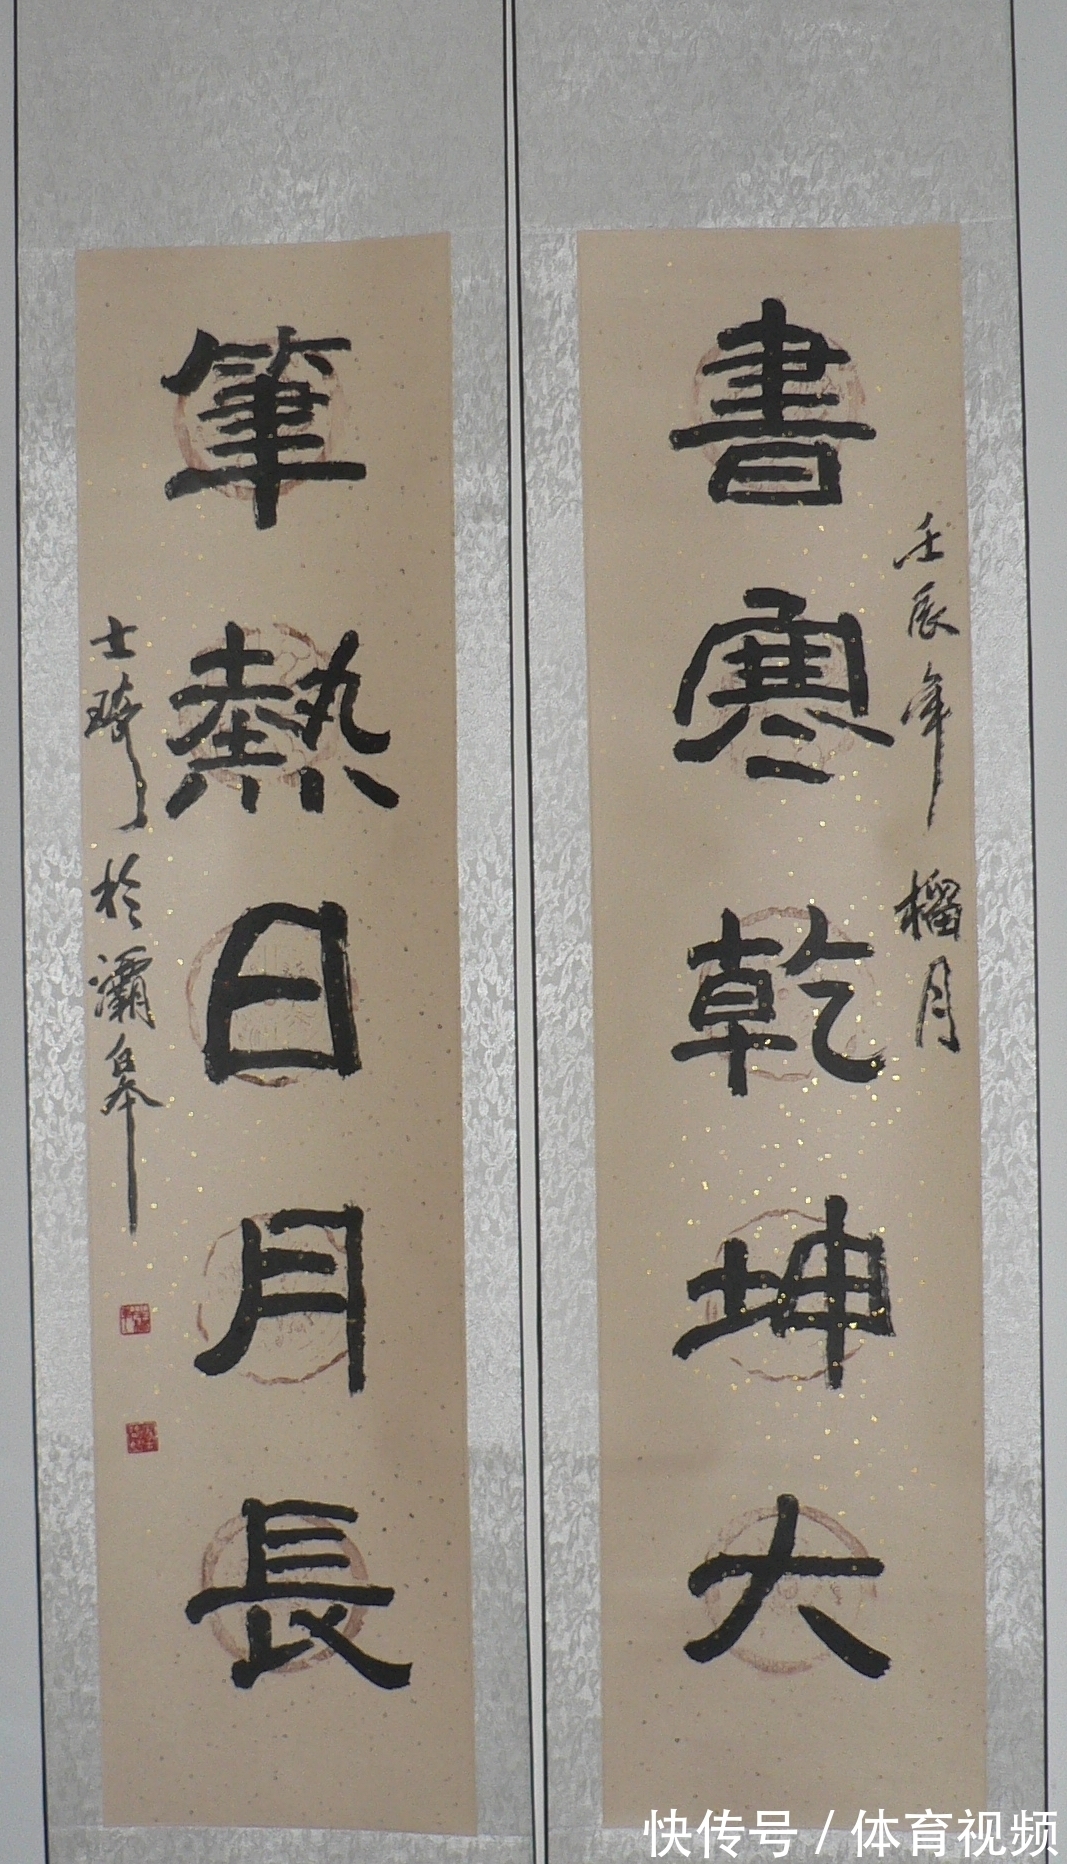 書寒乾坤大
壬辰年榴月
筆熱日月長
士琦於灞皋
快传号/体育视频